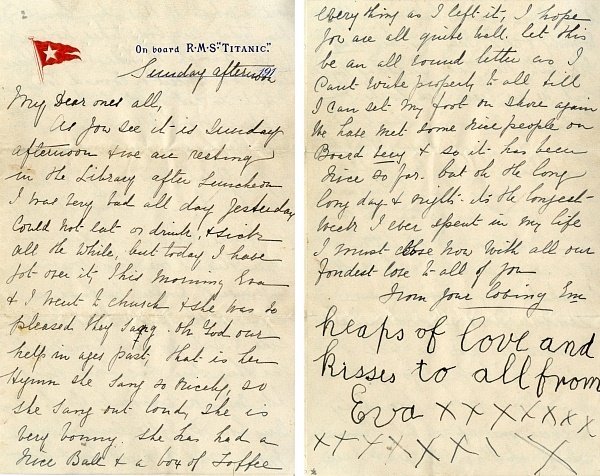 On board R.M.S. "TITANIC."
Sunday afternoon
My Dear ones all,
As you see it is Sunday
afternoon & we are resting
in the Library after Luncheon
I was very bad all day yesterday
Could not eat or drink, & sick
all the while, but today I have
got over it, This morning Eva
& I went to church & she was so
pleased they sang Oh God our
help in ages past, that is her
Hymn she sang so nicely, so
she sang out loud, she is
very bonny. She has had a
nice Ball & a box of Toffee
everything as I left it, I hope
you are all quite well. let this
be an all round letter as I
Cant write properly to all till
I can set my foot on shore again
We have met some nice people on
Board Lucy & so it has been
nice so far. but oh the long
long days & nights. its the longest
week I ever spent in my life
I must close now with all our
fondest love to all of you
From your loving
heaps of love and
kisses to all from
Eva x x x x x x x x